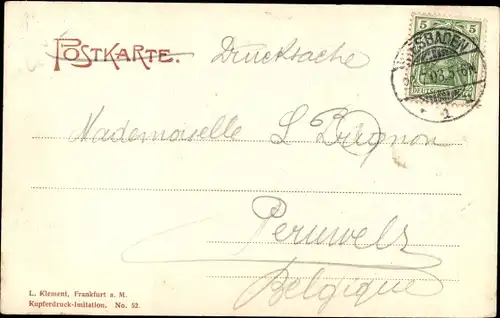 POSTKARTE. Drucksache
5 5
WIESBADEN
DEUTSCHES
* 1
Mademoiselle L
Peruwelz
Belgique
L. Klement, Frankfurt a. M.
Kupferdruck-Imitation. No. 52.